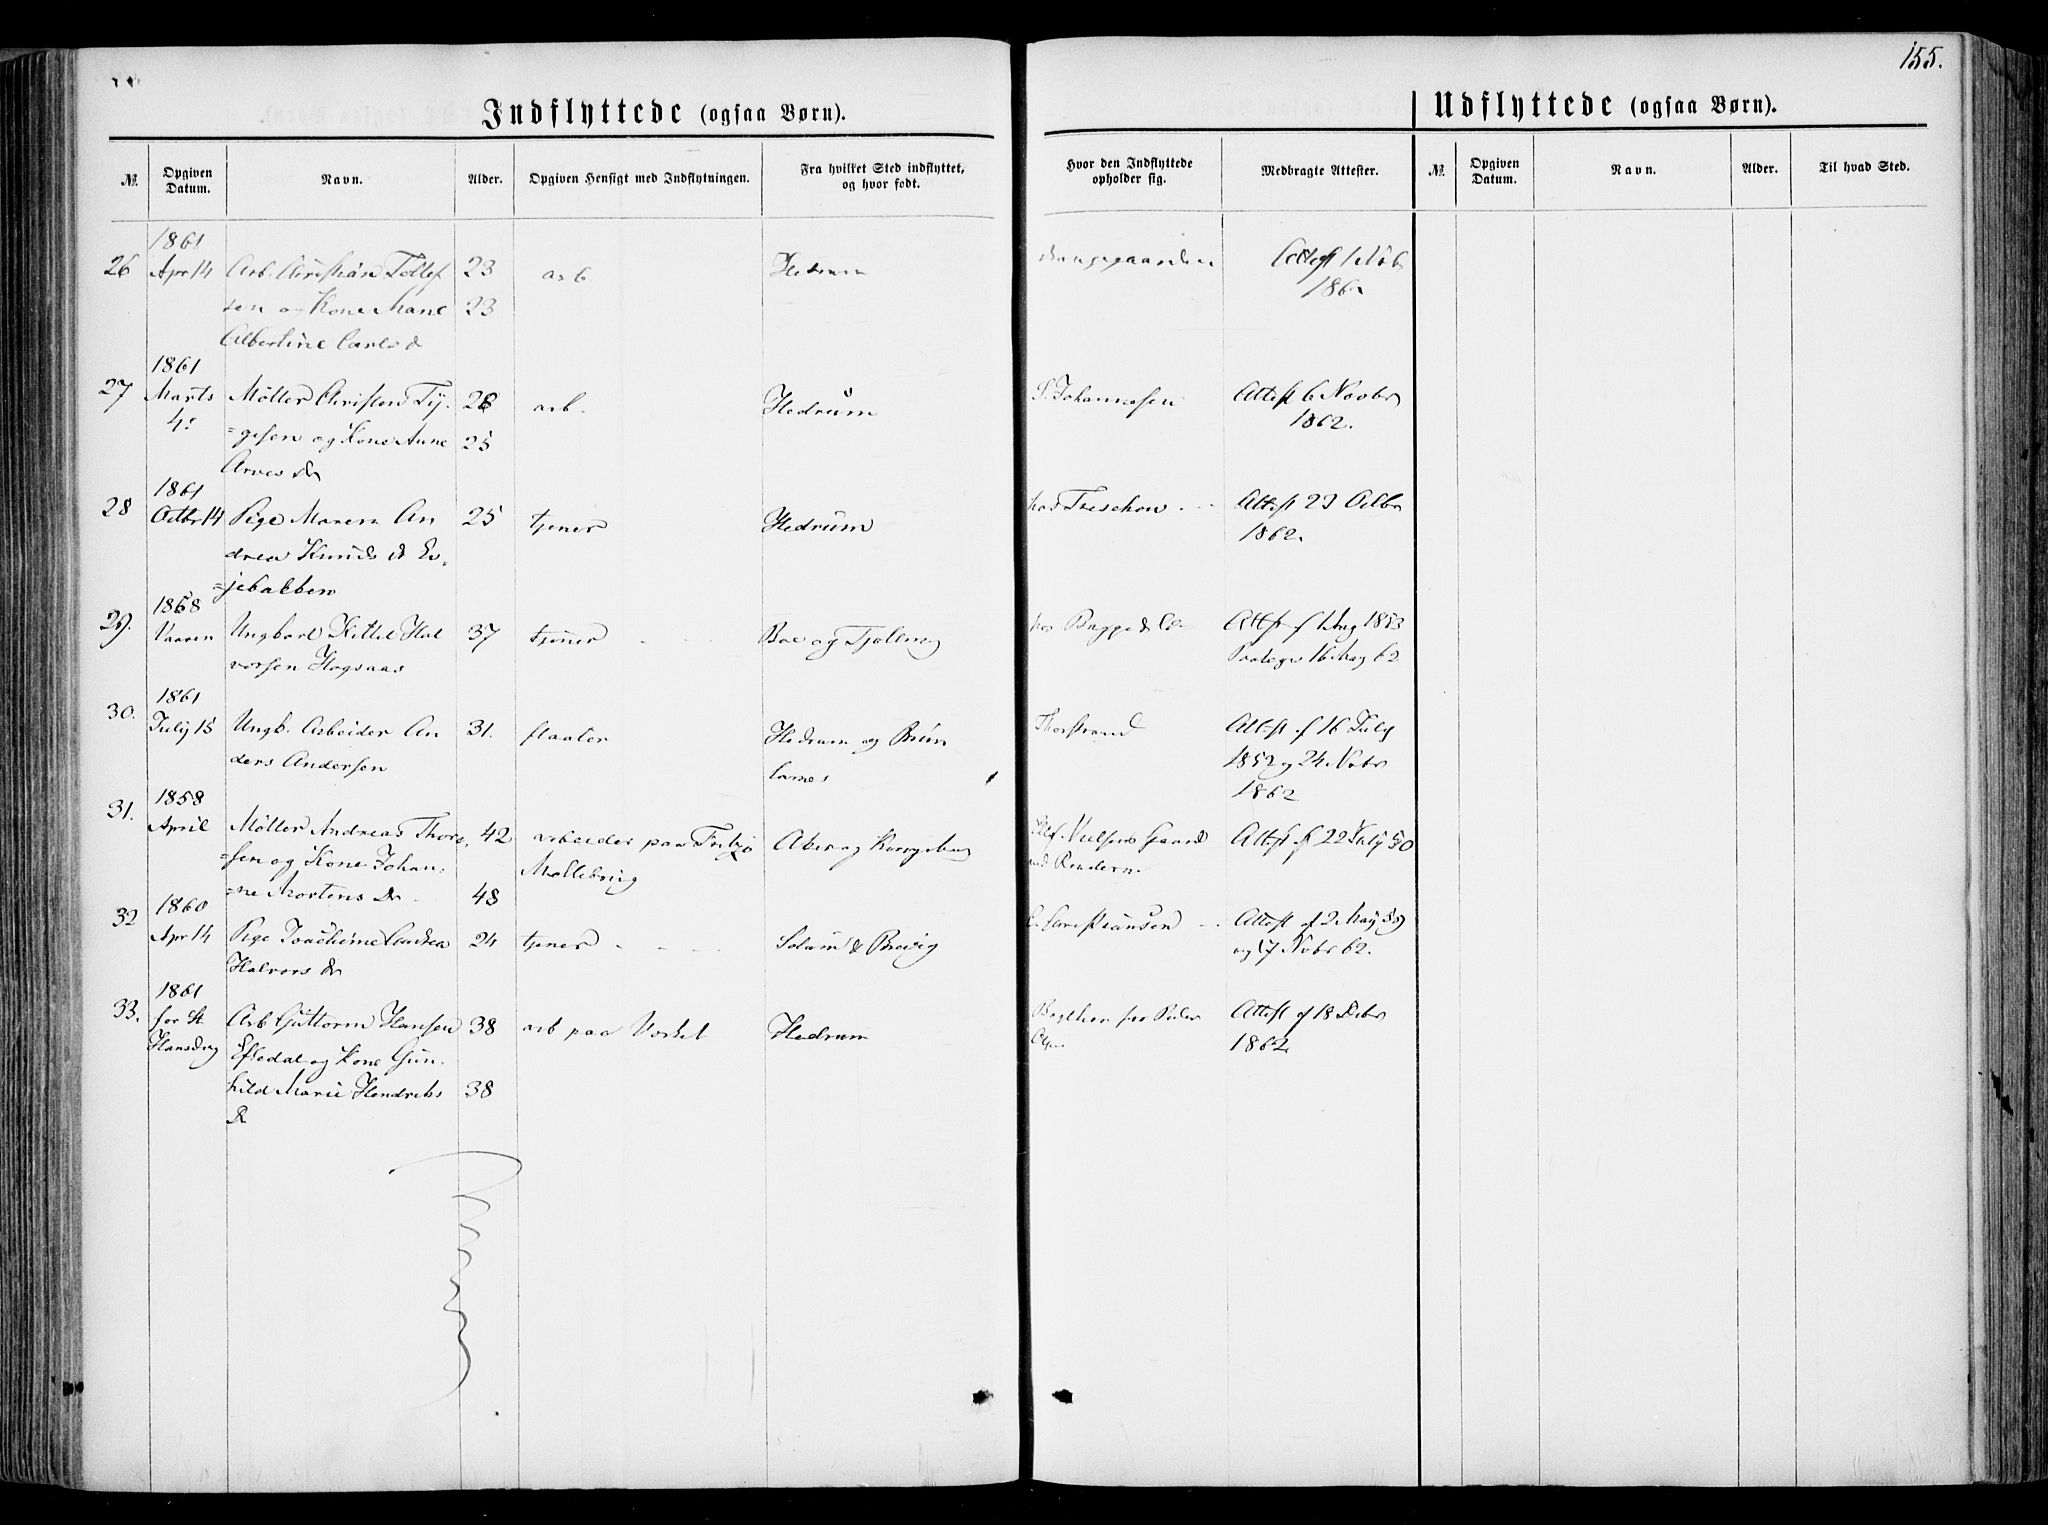 155.
Indflyttede (ogsaa Børn).
Udflyttede (ogsaa Børn).
№. Opgiven Datum. Navn. Alder. Opgiven Hensigt med Indflytningen. Fra hvilket Sted indflyttet, og hvor født. Hvor den Indflyttede opholder sig. Medbragte Attester. №. Opgiven Datum. Navn. Alder. Til hvad Sted.
1861
26 Apr 14 Arb. Christian Tollef 23 arb Hedrum Attest
sen og Kone 23 186
Albertine Carls d
1861
27 Marts Møller Christen Ty- 26 arb. Hedrum S. Johannesen Attest 6 Novbr
4: =gesen og Kone Anne 25 1862.
Arves Dr
1861
28 Octbr 14 Pige Maren An 25 tjener Hedrum hos Treschow - - Attest 23 Octbr
drea Knuds d 1862.
=jebakken
1858
29. Vaaren Ungkarl Kittel Hal 37 tjener - - Boe og Tjølling hos Bugge & Co Attest
vorsen Hogsaas 16 May 62
1861
30. July 15 Ungk. Arbeider An 31. Hedrum og Brun Thorstrand Attest af 16 July
ders Andersen lanes 1852 og 24 Novbr
1862
1858
31. April Møller Andreas Thor 42 arbeider paa Fritzø Aker og Nielsens Gaard Attest af 22 July 50
=sen og Kone Johan- Møllebrug
=ne Mortens Dr 48
1860
32 Apr 14 Pige Joachime 24 tjener - - - Solum & Brevig Christiansen - - Attest af 2 May 59
Halvors dr og 17 Novbr 62.
1861
33. før St Arb Guttorm Hansen 38 arb paa Verket Hedrum Attest af 18 Decbr
Hansdag og Kone Gun- Ols. 1862
hild Marie Hendriks 38
Dr